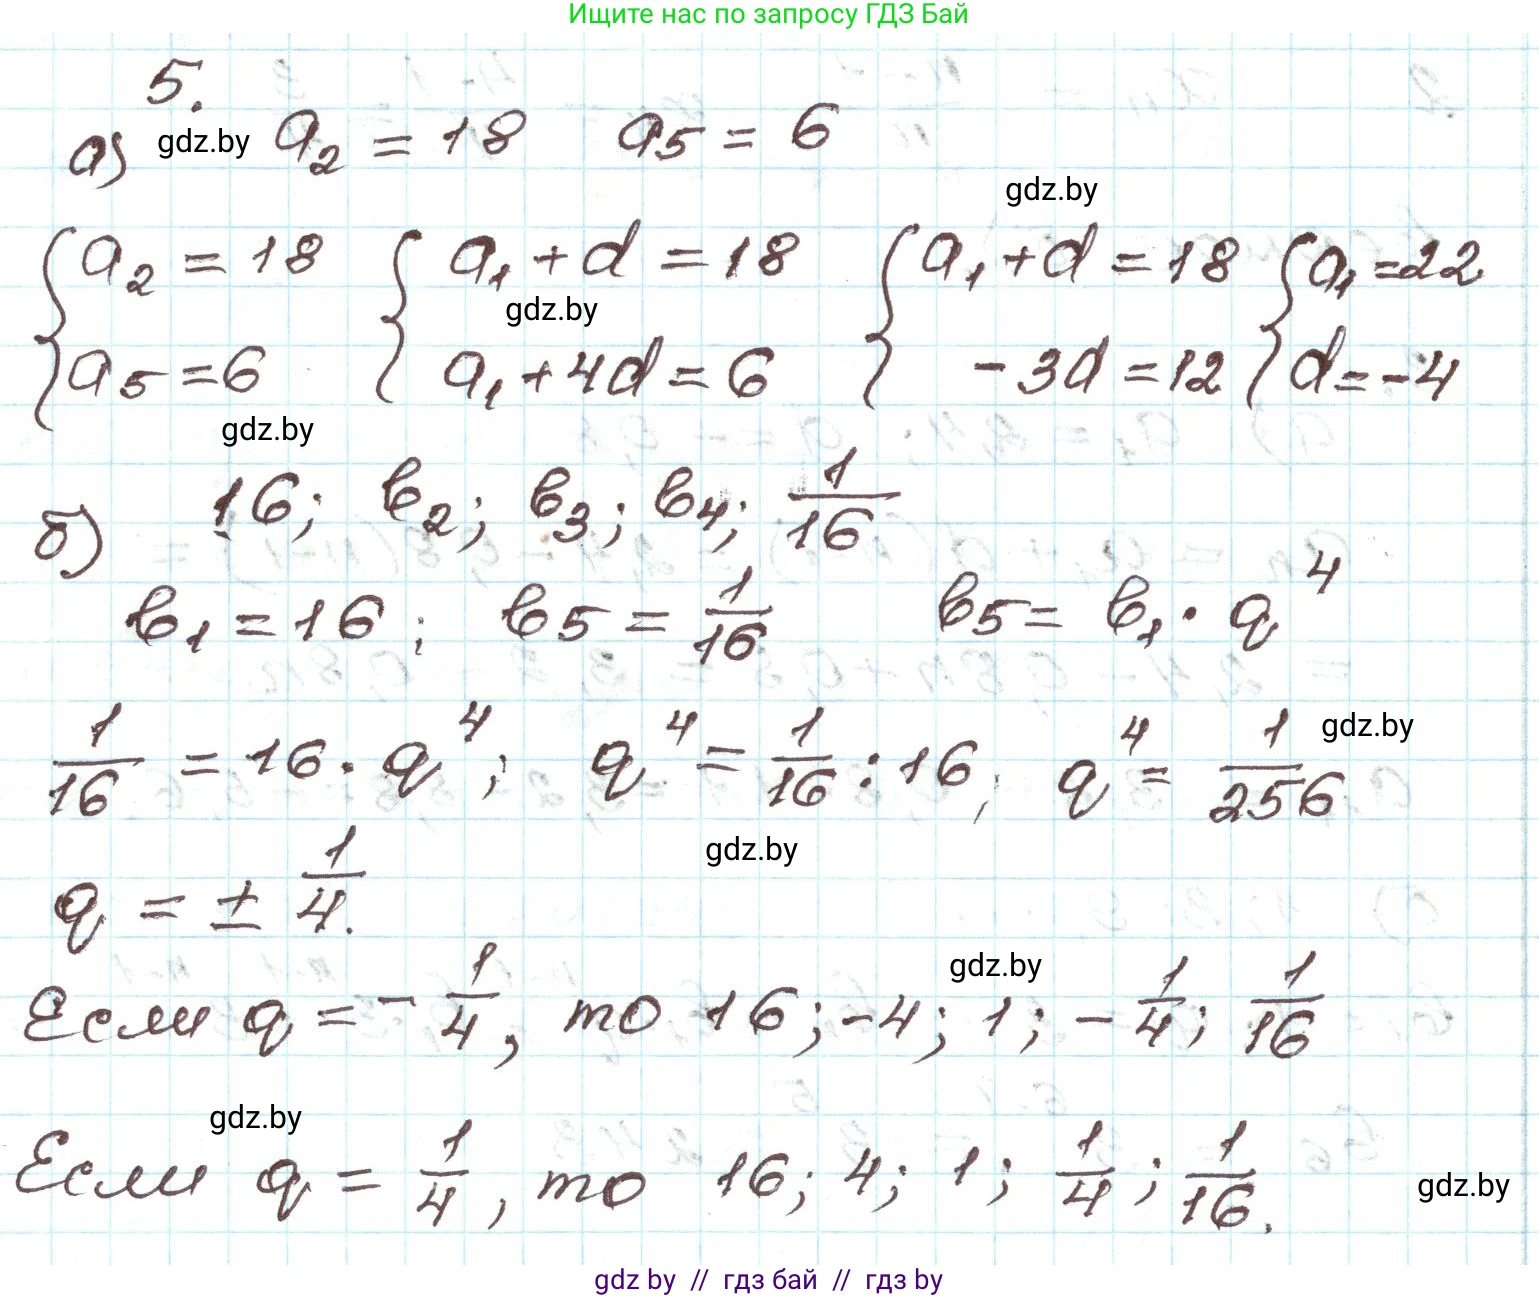 Ищите нас по запросу ГДЗ Бай
5.
а) gdz.by a₂ = 18 a₅ = 6
gdz.by
{ a₂ = 18 { a₁ + d = 18 { a₁ + d = 18 { a₁ = 22
gdz.by
a₅ = 6 a₁ + 4d = 6 - 3d = 12 d = -4
gdz.by
б) 16; b₂; b₃; b₄; 1/16
b₁ = 16; b₅ = 1/16 b₅ = b₁ · q⁴
1/16 = 16 · q⁴; q⁴ = 1/16 : 16; q⁴ = 1/256 gdz.by
gdz.by
q = ± 1/4.
gdz.by
Если q = - 1/4, то 16; -4; 1; - 1/4; 1/16
gdz.by
Если q = 1/4, то 16; 4; 1; 1/4; 1/16.
gdz.by
gdz by // гдз бай // гдз by